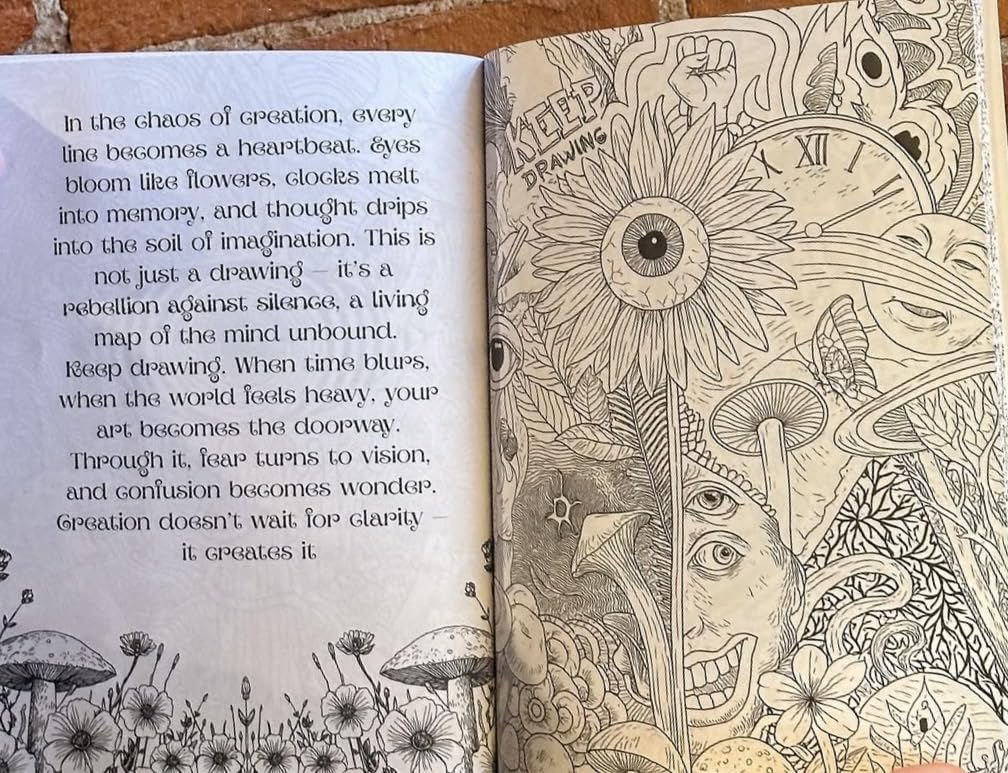 In the chaos of creation, every
line becomes a heartbeat. Eyes
bloom like flowers, clocks melt
into memory, and thought drips
into the soil of imagination. This is
not just a drawing — it's a
rebellion against silence, a living
map of the mind unbound.
Keep drawing. When time blurs,
when the world feels heavy, your
art becomes the doorway.
Through it, fear turns to vision,
and confusion becomes wonder.
Creation doesn't wait for clarity —
it creates it
KEEP
DRAWING
X XII I